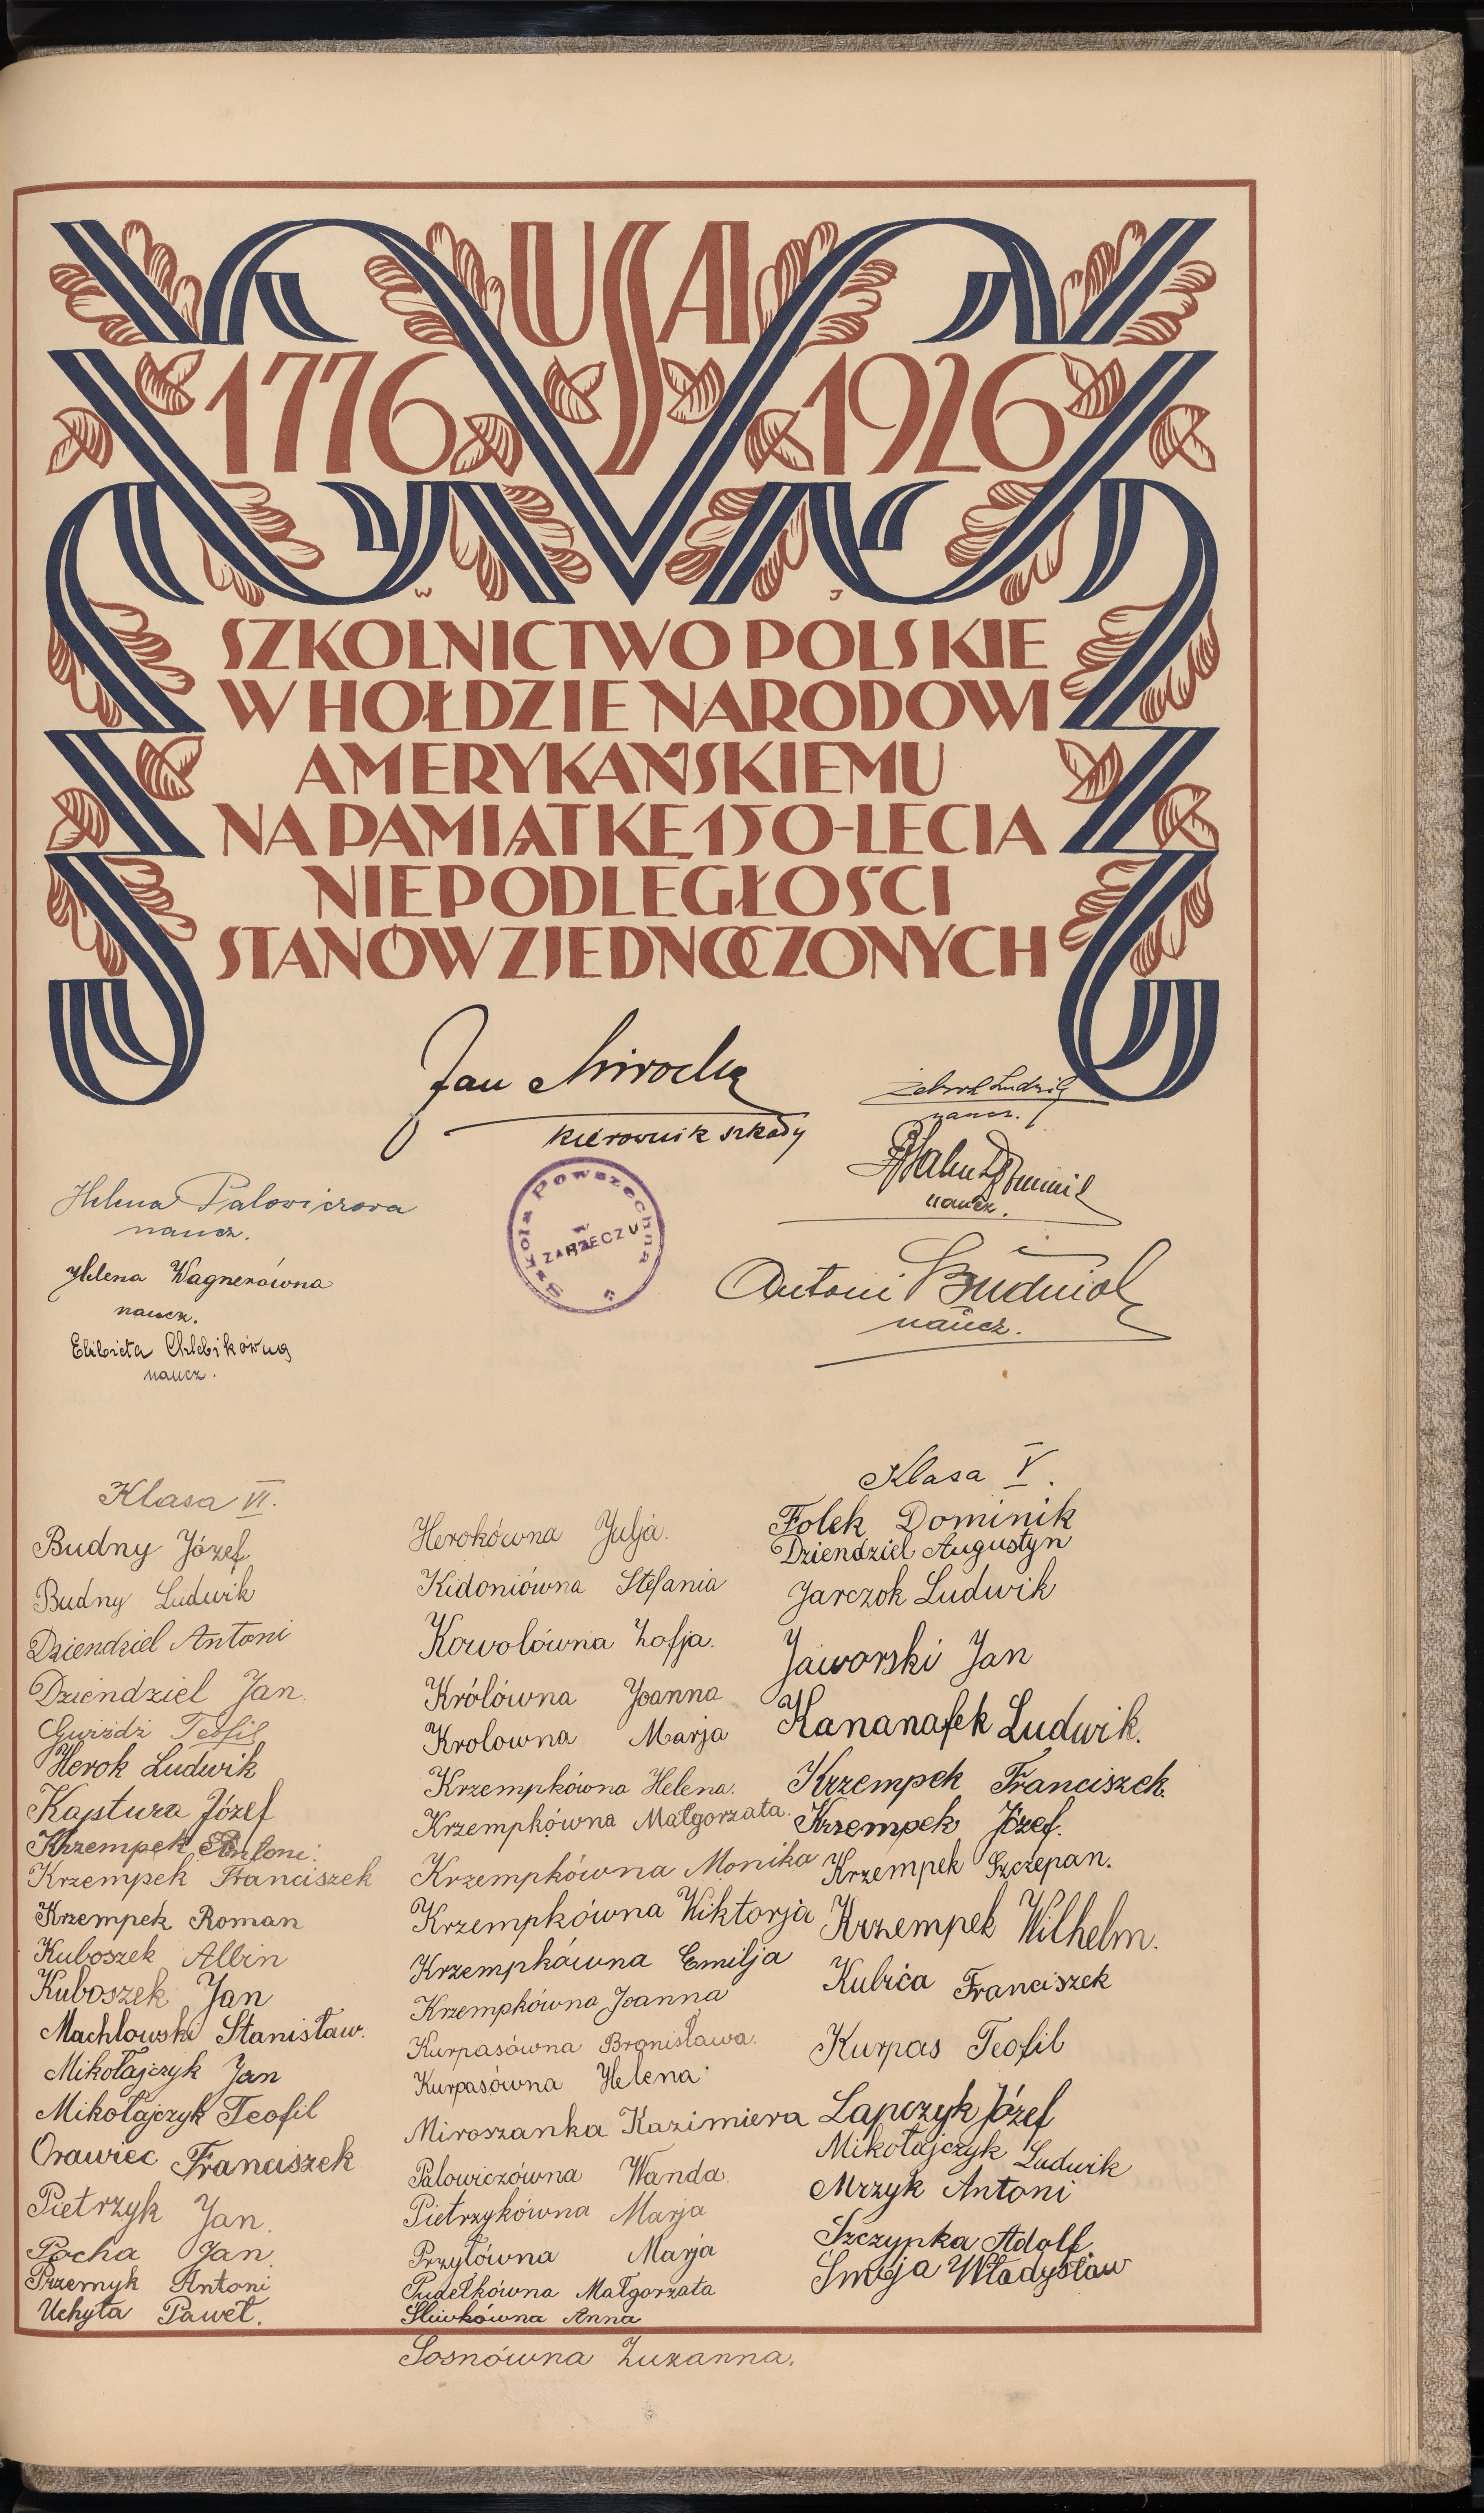 USA
1776 1926
W J
SZKOLNICTWO POLSKIE
W HOŁDZIE NARODOWI
AMERYKAŃSKIEMU
NA PAMIĄTKĘ 150-LECIA
NIEPODLEGŁOŚCI
STANÓW ZJEDNOCZONYCH
Jan
kierownik szkoły
Ludwik
naucz.
Dominik
naucz.
Antoni Budniok
naucz.
Szkoła Powszechna
w
ZARZECZU
Helena Palowiczowa
naucz.
Helena Wagnerówna
naucz.
Elżbieta Chlebikówna
naucz.
Klasa VI.
Budny Józef
Budny Ludwik
Dziendziel Antoni
Dziendziel Jan.
Gwiżdż Teofil
Herok Ludwik
Kajstura Józef
Krzempek Antoni.
Krzempek Franciszek
Krzempek Roman
Kuboszek Albin
Kuboszek Jan
Machlowski Stanisław.
Mikołajczyk Jan
Mikołajczyk Teofil
Orawiec Franciszek
Pietrzyk Jan.
Pocha Jan.
Przemyk Antoni
Uchyła Paweł.
Herokówna Julja.
Kidoniówna Stefania
Kowolówna Zofja.
Królówna Joanna
Krolowna Marja
Krzempkówna Helena.
Krzempkówna Małgorzata.
Krzempkówna Monika
Krzempkówna Wiktorja
Krzempkówna Emilja
Krzempkówna Joanna
Kurpasówna Bronisława.
Kurpasówna Helena
Miroszanka Kazimiera
Palowiczówna Wanda.
Pietrzykówna Marja
Przyłówna Marja
Pudełkówna Małgorzata
Sliwkówna Anna
Sosnówna Zuzanna.
Klasa V.
Folek Dominik
Dziendziel Augustyn
Jarczok Ludwik
Jaworski Jan
Kananafek Ludwik.
Krzempek Franciszek.
Krzempek Józef.
Krzempek Szczepan.
Krzempek Wilhelm.
Kubica Franciszek
Kurpas Teofil
Lapczyk Józef
Mikołajczyk Ludwik
Mrzyk Antoni
Szczypka Adolf.
Smieja Władysław